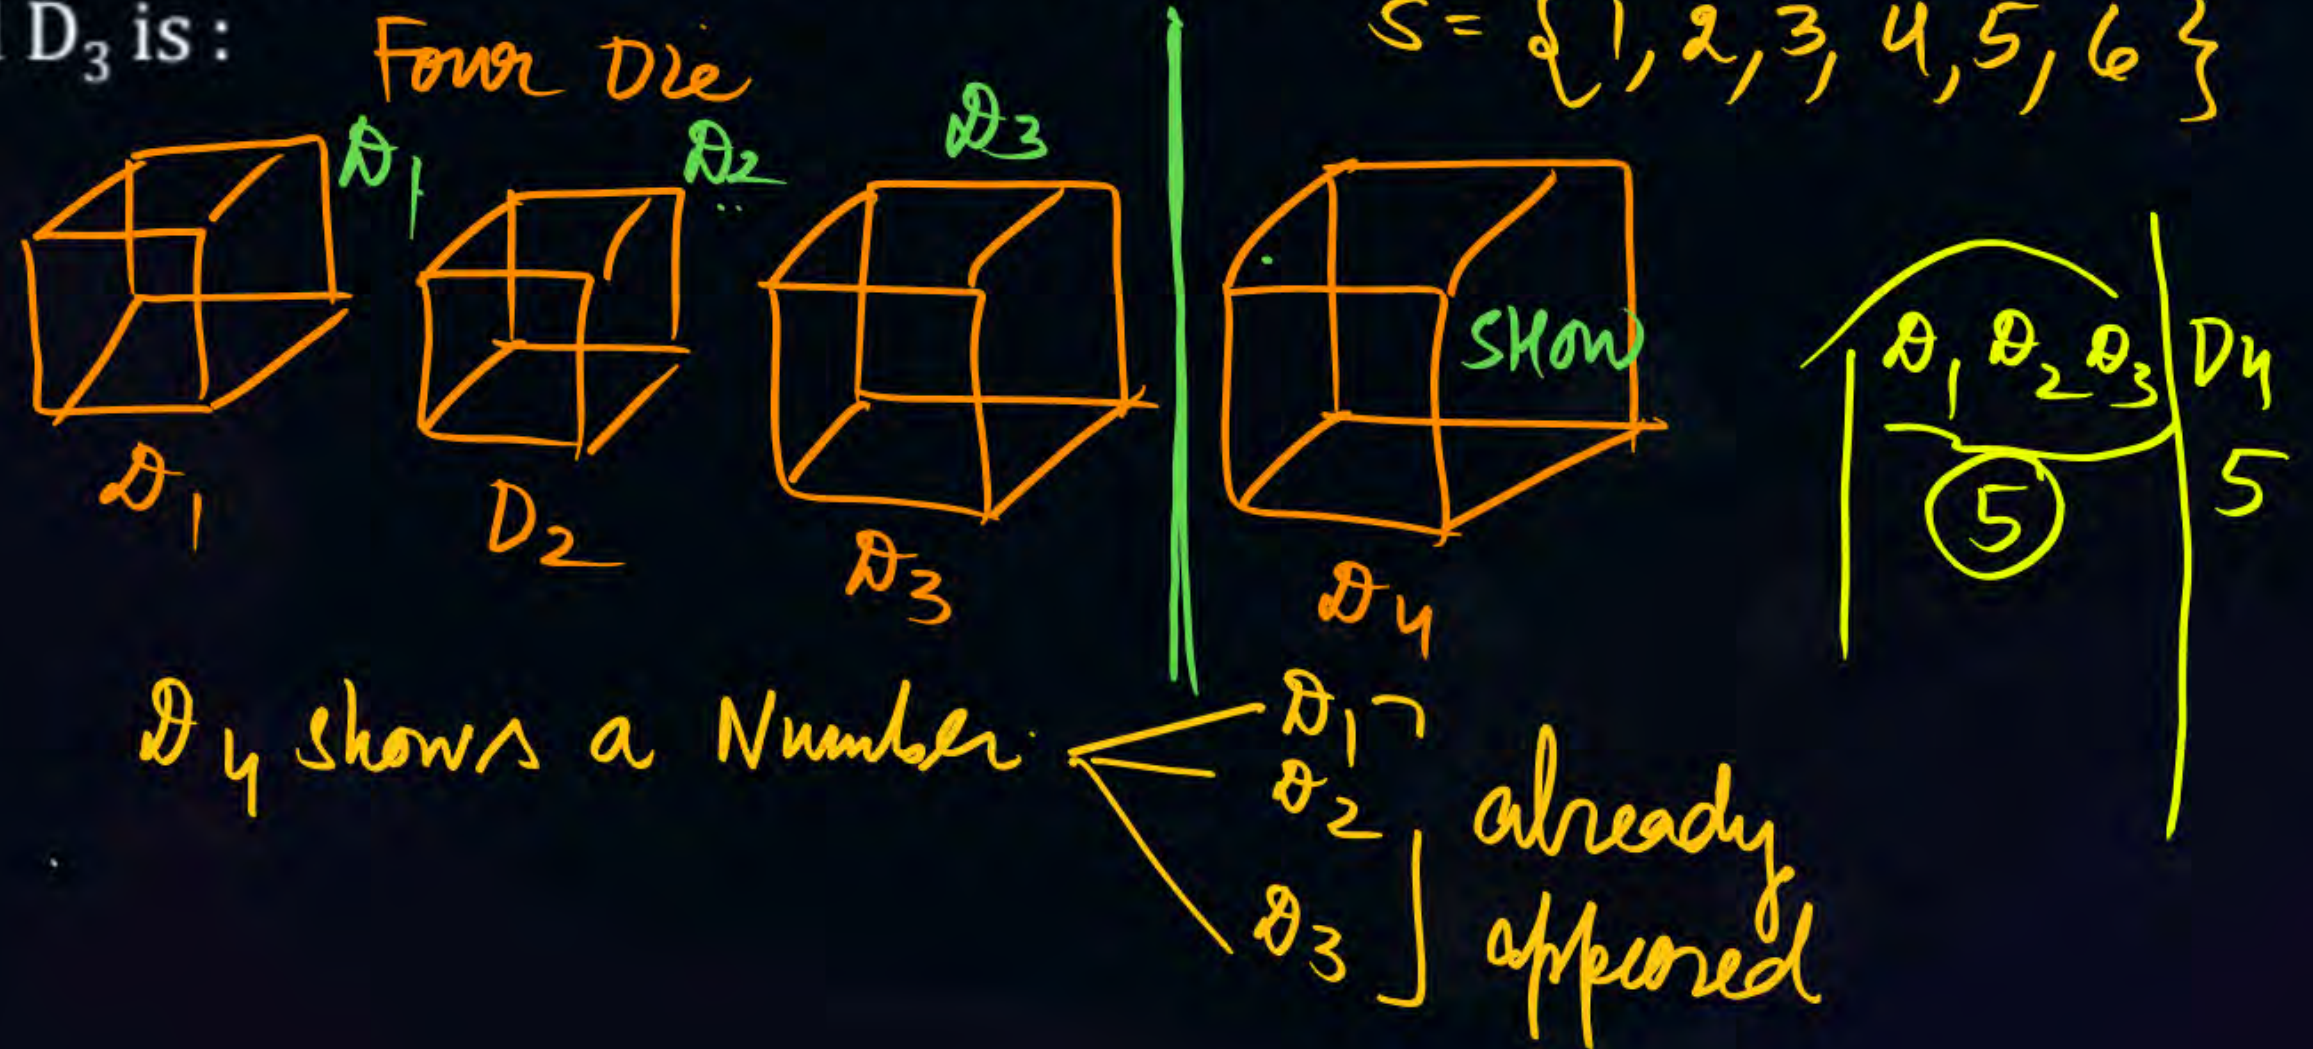 D₃ is :
Four Die
S = {1, 2, 3, 4, 5, 6}
D₁
D₂
D₃
SHOW
D₁ D₂ D₃ D4
5 5
D₁
D₂
D₃
D4
D4 shows a Number
D₁
D₂
D₃
already
appeared